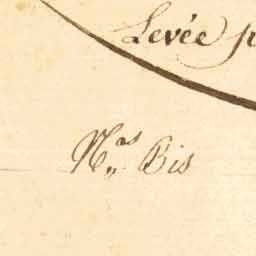 Levée
N.as Bis